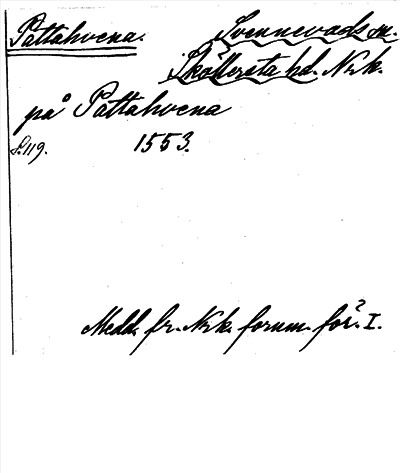 Pattahvena. Svennevads sn.
Skållersta hd. Nrk.
på Pattahvena
S. 119. 1553.
Medd. fr. Nrk. fornm. för. I.